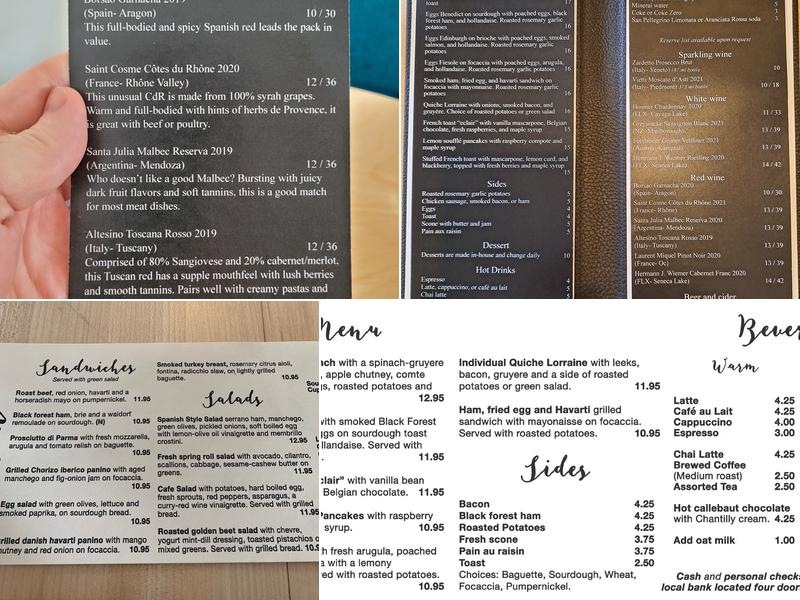 Borsao Garnacha 2019
(Spain- Aragon) 10 / 30
This full-bodied and spicy Spanish red leads the pack in
value.
Saint Cosme Côtes du Rhône 2020
(France- Rhône Valley) 12 / 36
This unusual CdR is made from 100% syrah grapes.
Warm and full-bodied with hints of herbs de Provence, it
is great with beef or poultry.
Santa Julia Malbec Reserva 2019
(Argentina- Mendoza) 12 / 36
Who doesn't like a good Malbec? Bursting with juicy
dark fruit flavors and soft tannins, this is a good match
for most meat dishes.
Altesino Toscana Rosso 2019
(Italy- Tuscany) 12 / 36
Comprised of 80% Sangiovese and 20% cabernet/merlot,
this Tuscan red has a supple mouthfeel with lush berries
and smooth tannins. Pairs well with creamy pastas and
toast 17
Eggs Benedict on sourdough with poached eggs, black
forest ham, and hollandaise. Roasted rosemary garlic
potatoes 16
Eggs Edinburgh on brioche with poached eggs, smoked
salmon, and hollandaise. Roasted rosemary garlic
potatoes 16
Eggs Fiesole on focaccia with poached eggs, arugula,
and hollandaise. Roasted rosemary garlic
potatoes 16
Smoked ham, fried egg, and havarti sandwich on
focaccia with mayonnaise. Roasted rosemary garlic
potatoes 16
Quiche Lorraine with onions, smoked bacon, and
gruyère. Choice of roasted potatoes or green salad. 16
French toast "eclair" with vanilla mascarpone, Belgian
chocolate, fresh raspberries, and maple syrup 15
Lemon soufflé pancakes with raspberry compote and
maple syrup 15
Stuffed French toast with mascarpone, lemon curd, and
blackberry, topped with fresh berries and maple syrup
15
Sides
Roasted rosemary garlic potatoes 5
Chicken sausage, smoked bacon, or ham 5
Eggs 5
Toast 4
Scone with butter and jam 5
Pain aux raisin 5
Dessert
Desserts are made in-house and change daily 10
Hot Drinks
Espresso 4
Latte, cappuccino, or café au lait 5
Chai latte 5
Mineral water 5
Coke or Coke Zero 3
San Pellegrino Limonata or Aranciata Rossa soda 3
Reserve list available upon request
Sparkling wine
Zardetto Prosecco Brut
(Italy- Veneto) 187 ml bottle 10
Vietti Moscato d'Asti 2021
(Italy- Piedmont) 375 ml bottle 10 / 18
White wine
Hosmer Chardonnay 2020
(FLX- Cayuga Lake) 11 / 33
Greywacke Sauvignon Blanc 2021
(NZ- Marlborough) 13 / 39
Forstreiter Grüner Veltliner 2021
(Austria- Kamptal) 13 / 39
Hermann J. Wiemer Riesling 2020
(FLX- Seneca Lake) 14 / 42
Red wine
Borsao Garnacha 2020
(Spain- Aragon) 10 / 30
Saint Cosme Côtes du Rhône 2021
(France- Rhône) 13 / 39
Santa Julia Malbec Reserva 2020
(Argentina- Mendoza) 13 / 39
Altesino Toscana Rosso 2019
(Italy- Tuscany) 13 / 39
Laurent Miquel Pinot Noir 2020
(France- Oc) 13 / 39
Hermann J. Wiemer Cabernet Franc 2020
(FLX- Seneca Lake) 14 / 42
Beer and cider
Sandwiches
Served with green salad
Roast beef, red onion, havarti and a
horseradish mayo on pumpernickel. 11.95
Black forest ham, brie and a waldorf
remoulade on sourdough. (N) 10.95
Prosciutto di Parma with fresh mozzarella,
arugula and tomato relish on baguette.
10.95
Grilled Chorizo iberico panino with aged
manchego and fig-onion jam on focaccia.
10.95
Egg salad with green olives, lettuce and
smoked paprika, on sourdough bread.
10.95
Grilled danish havarti panino with mango
chutney and red onion on focaccia. 10.95
Smoked turkey breast, rosemary citrus aioli,
fontina, radicchio slaw, on lightly grilled
baguette. 10.95
Salads
Spanish Style Salad serrano ham, manchego,
green olives, pickled onions, soft boiled egg
with lemon-olive oil vinaigrette and membrillo
crostini. 12.95
Fresh spring roll salad with avocado, cilantro,
scallions, cabbage, sesame-cashew butter on
greens. 11.95
Cafe Salad with potatoes, hard boiled egg,
fresh sprouts, red peppers, asparagus, a
curry-red wine vinaigrette. Served with grilled
bread. 11.95
Roasted golden beet salad with chevre,
yogurt mint-dill dressing, toasted pistachios on
mixed greens. Served with grilled bread. 10.9
Sou
Cup
Menu
nch with a spinach-gruyere
, apple chutney, comte
s, roasted potatoes and
12.95
with smoked Black Forest
ggs on sourdough toast
llandaise. Served with
11.95
clair" with vanilla bean
Belgian chocolate. 11.95
Pancakes with raspberry
syrup. 10.95
h fresh arugula, poached
a with a lemony
ed with roasted potatoes.
10.95
Individual Quiche Lorraine with leeks,
bacon, gruyere and a side of roasted
potatoes or green salad. 11.95
Ham, fried egg and Havarti grilled
sandwich with mayonnaise on focaccia.
Served with roasted potatoes. 10.95
Sides
Bacon 4.25
Black forest ham 4.25
Roasted Potatoes 4.25
Fresh scone 3.75
Pain au raisin 3.75
Toast 2.50
Choices: Baguette, Sourdough, Wheat,
Focaccia, Pumpernickel.
Bever
Warm
Latte 4.25
Café au Lait 4.25
Cappuccino 4.00
Espresso 3.00
Chai Latte 4.25
Brewed Coffee
(Medium roast) 2.50
Assorted Tea 2.50
Hot callebaut chocolate
with Chantilly cream. 4.25
Add oat milk 1.00
Cash and personal checks
local bank located four door